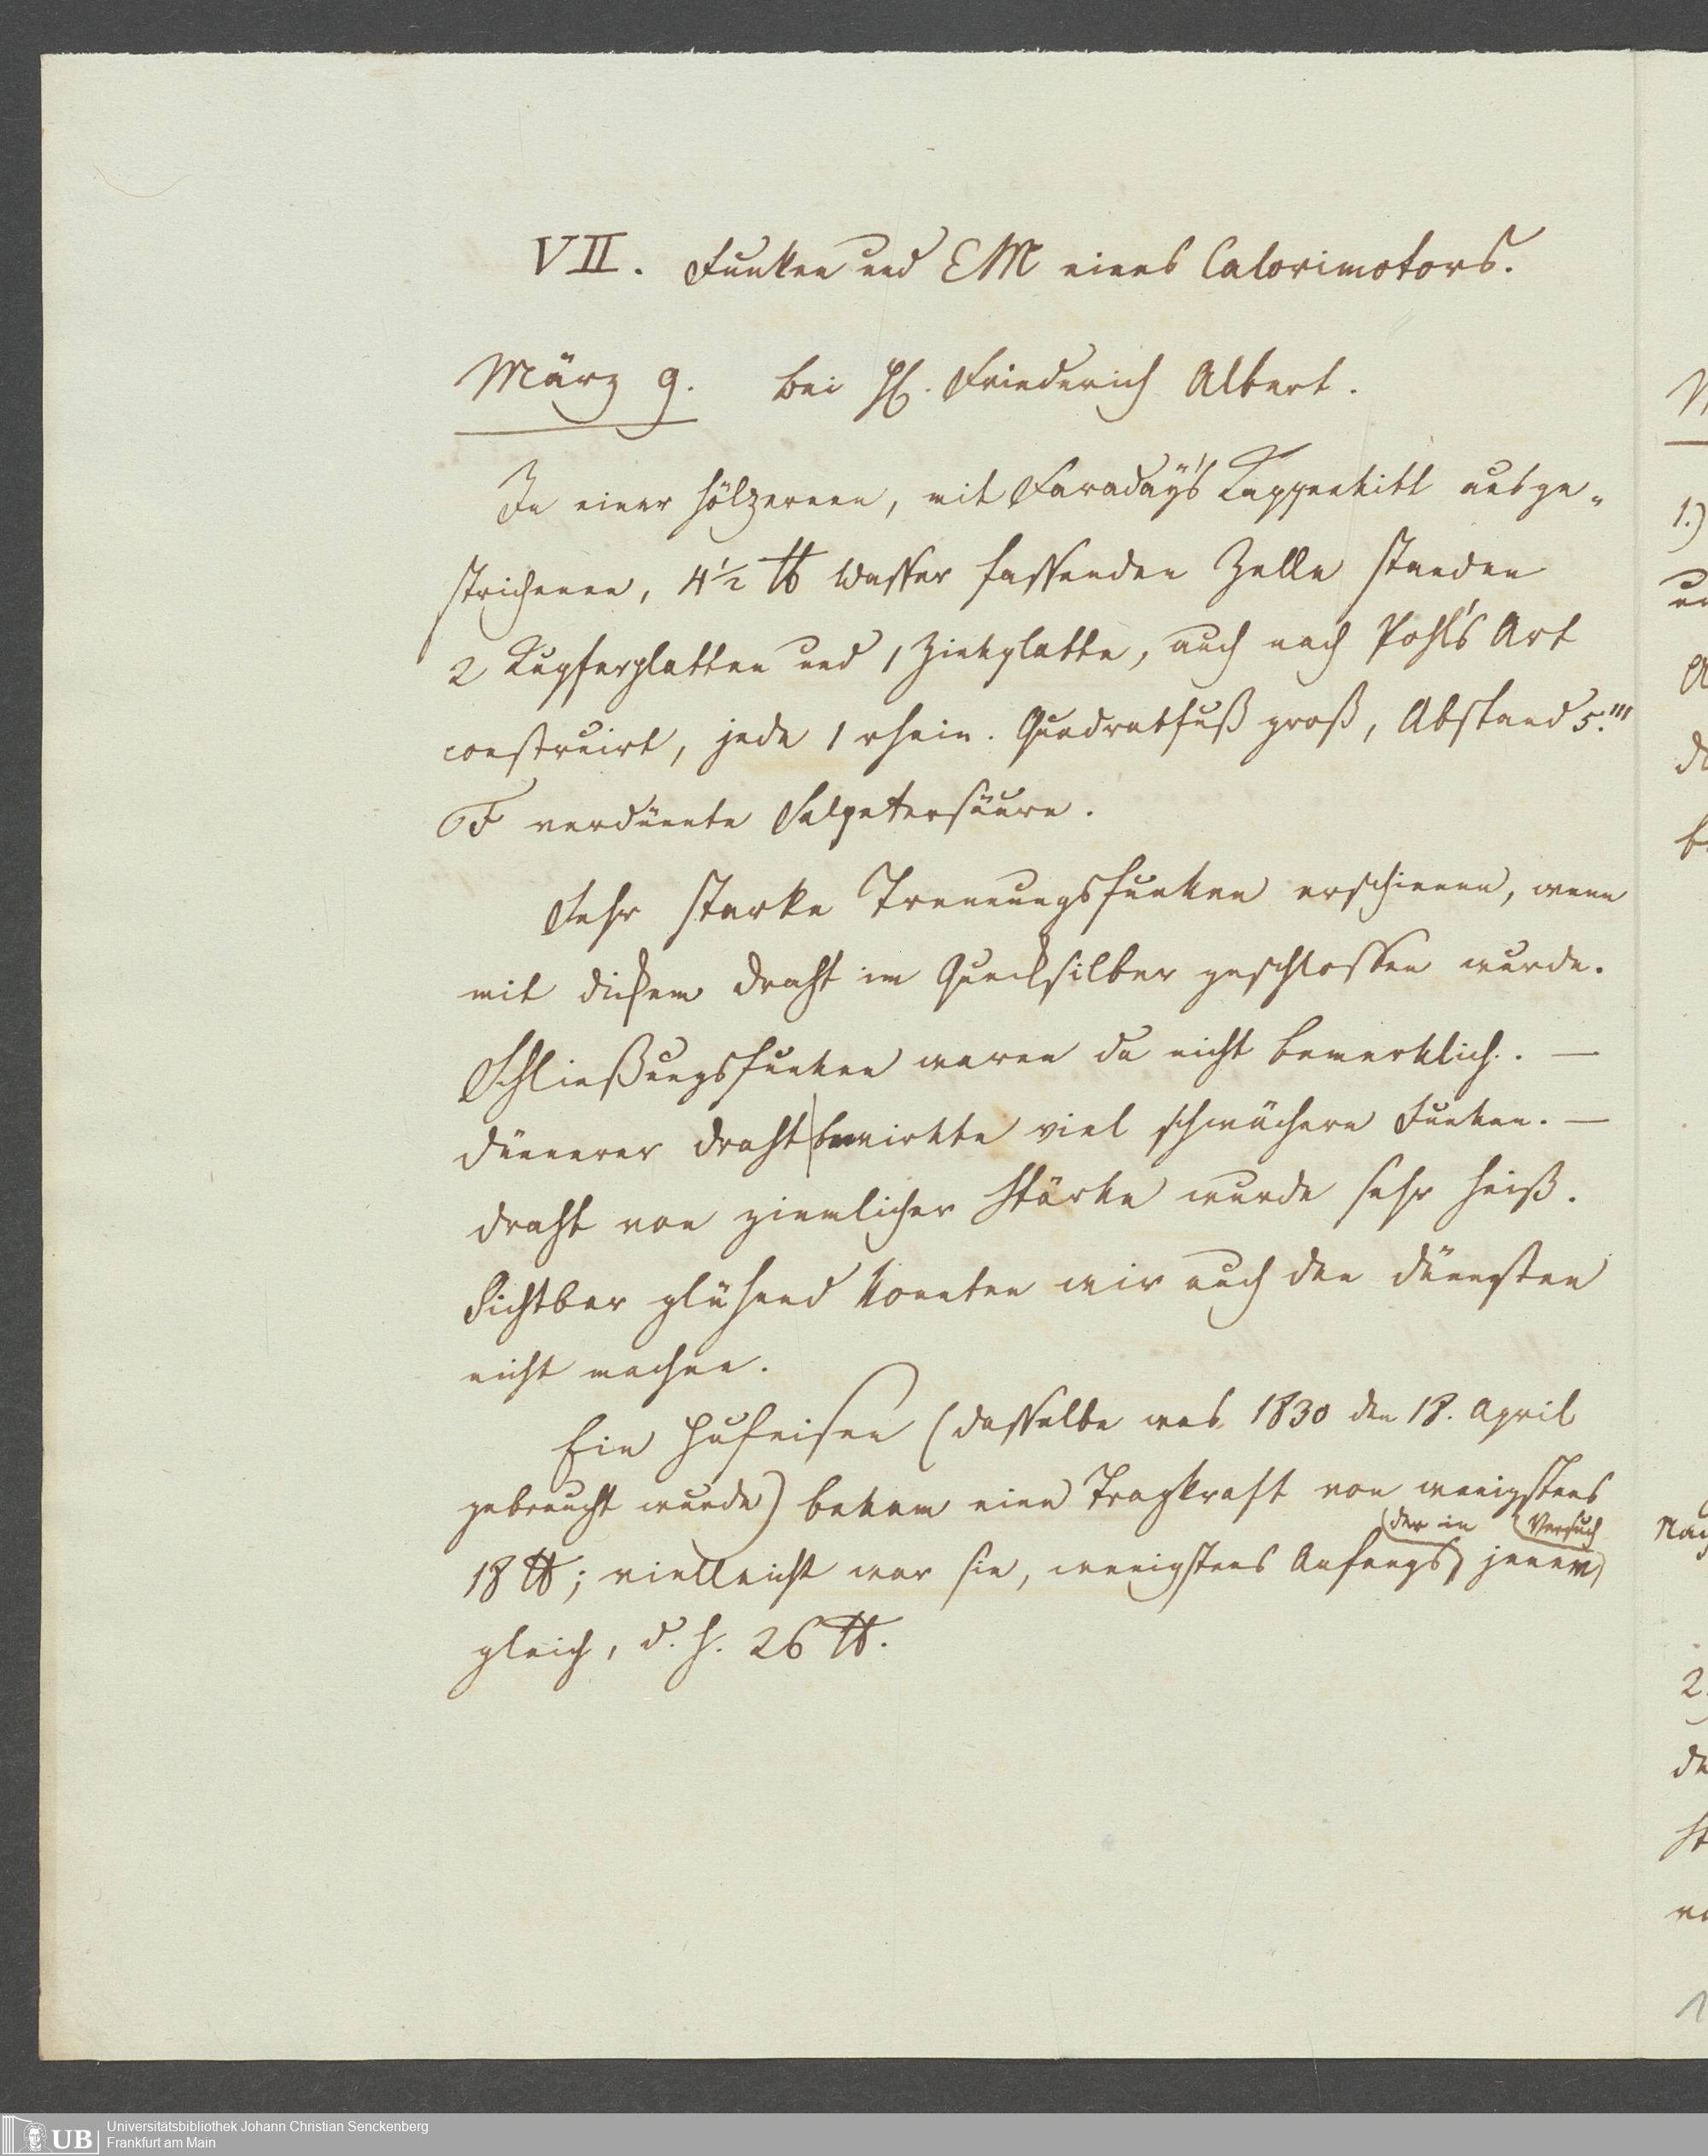 VII. Funken und EM eines Calorimotors.
März 9. Bei H. Friederich Albert.
In einer hölzernen, mit Faraday's Kappenkitt ausge„
strichenen, 4½ ℔ Wasser fassenden Zelle standen
2 Kupferplatten und 1 Zinkplatte, auch nach Pohl's Art
construirt, jede 1 rhein. Quadratfuß groß, Abstand 5.'''
F verdünnte Salpetersäure.
Sehr starke Trennungsfunken erschienen, wenn
mit dickem Draht im Quecksilber geschlossen wurde.
Schließungsfunken waren da nicht bemerklich. —
Dünnerer Draht bewirkte viel schwächere Funken. —
Draht von ziemlicher Stärke wurde sehr heiß.
Sichtbar glühend konnten wir auch den dünnsten
nicht machen.
Ein Hufeisen (dasselbe was 1830 den 18. April
gebraucht wurde) bekam eine Tragkraft von wenigstens
der in Versuch
18 ℔; vielleicht war sie, wenigstens Anfangs jenem
gleich, d. h. 26 ℔.
1.)
Nach
2.
UB
Universitätsbibliothek Johann Christian Senckenberg
Frankfurt am Main